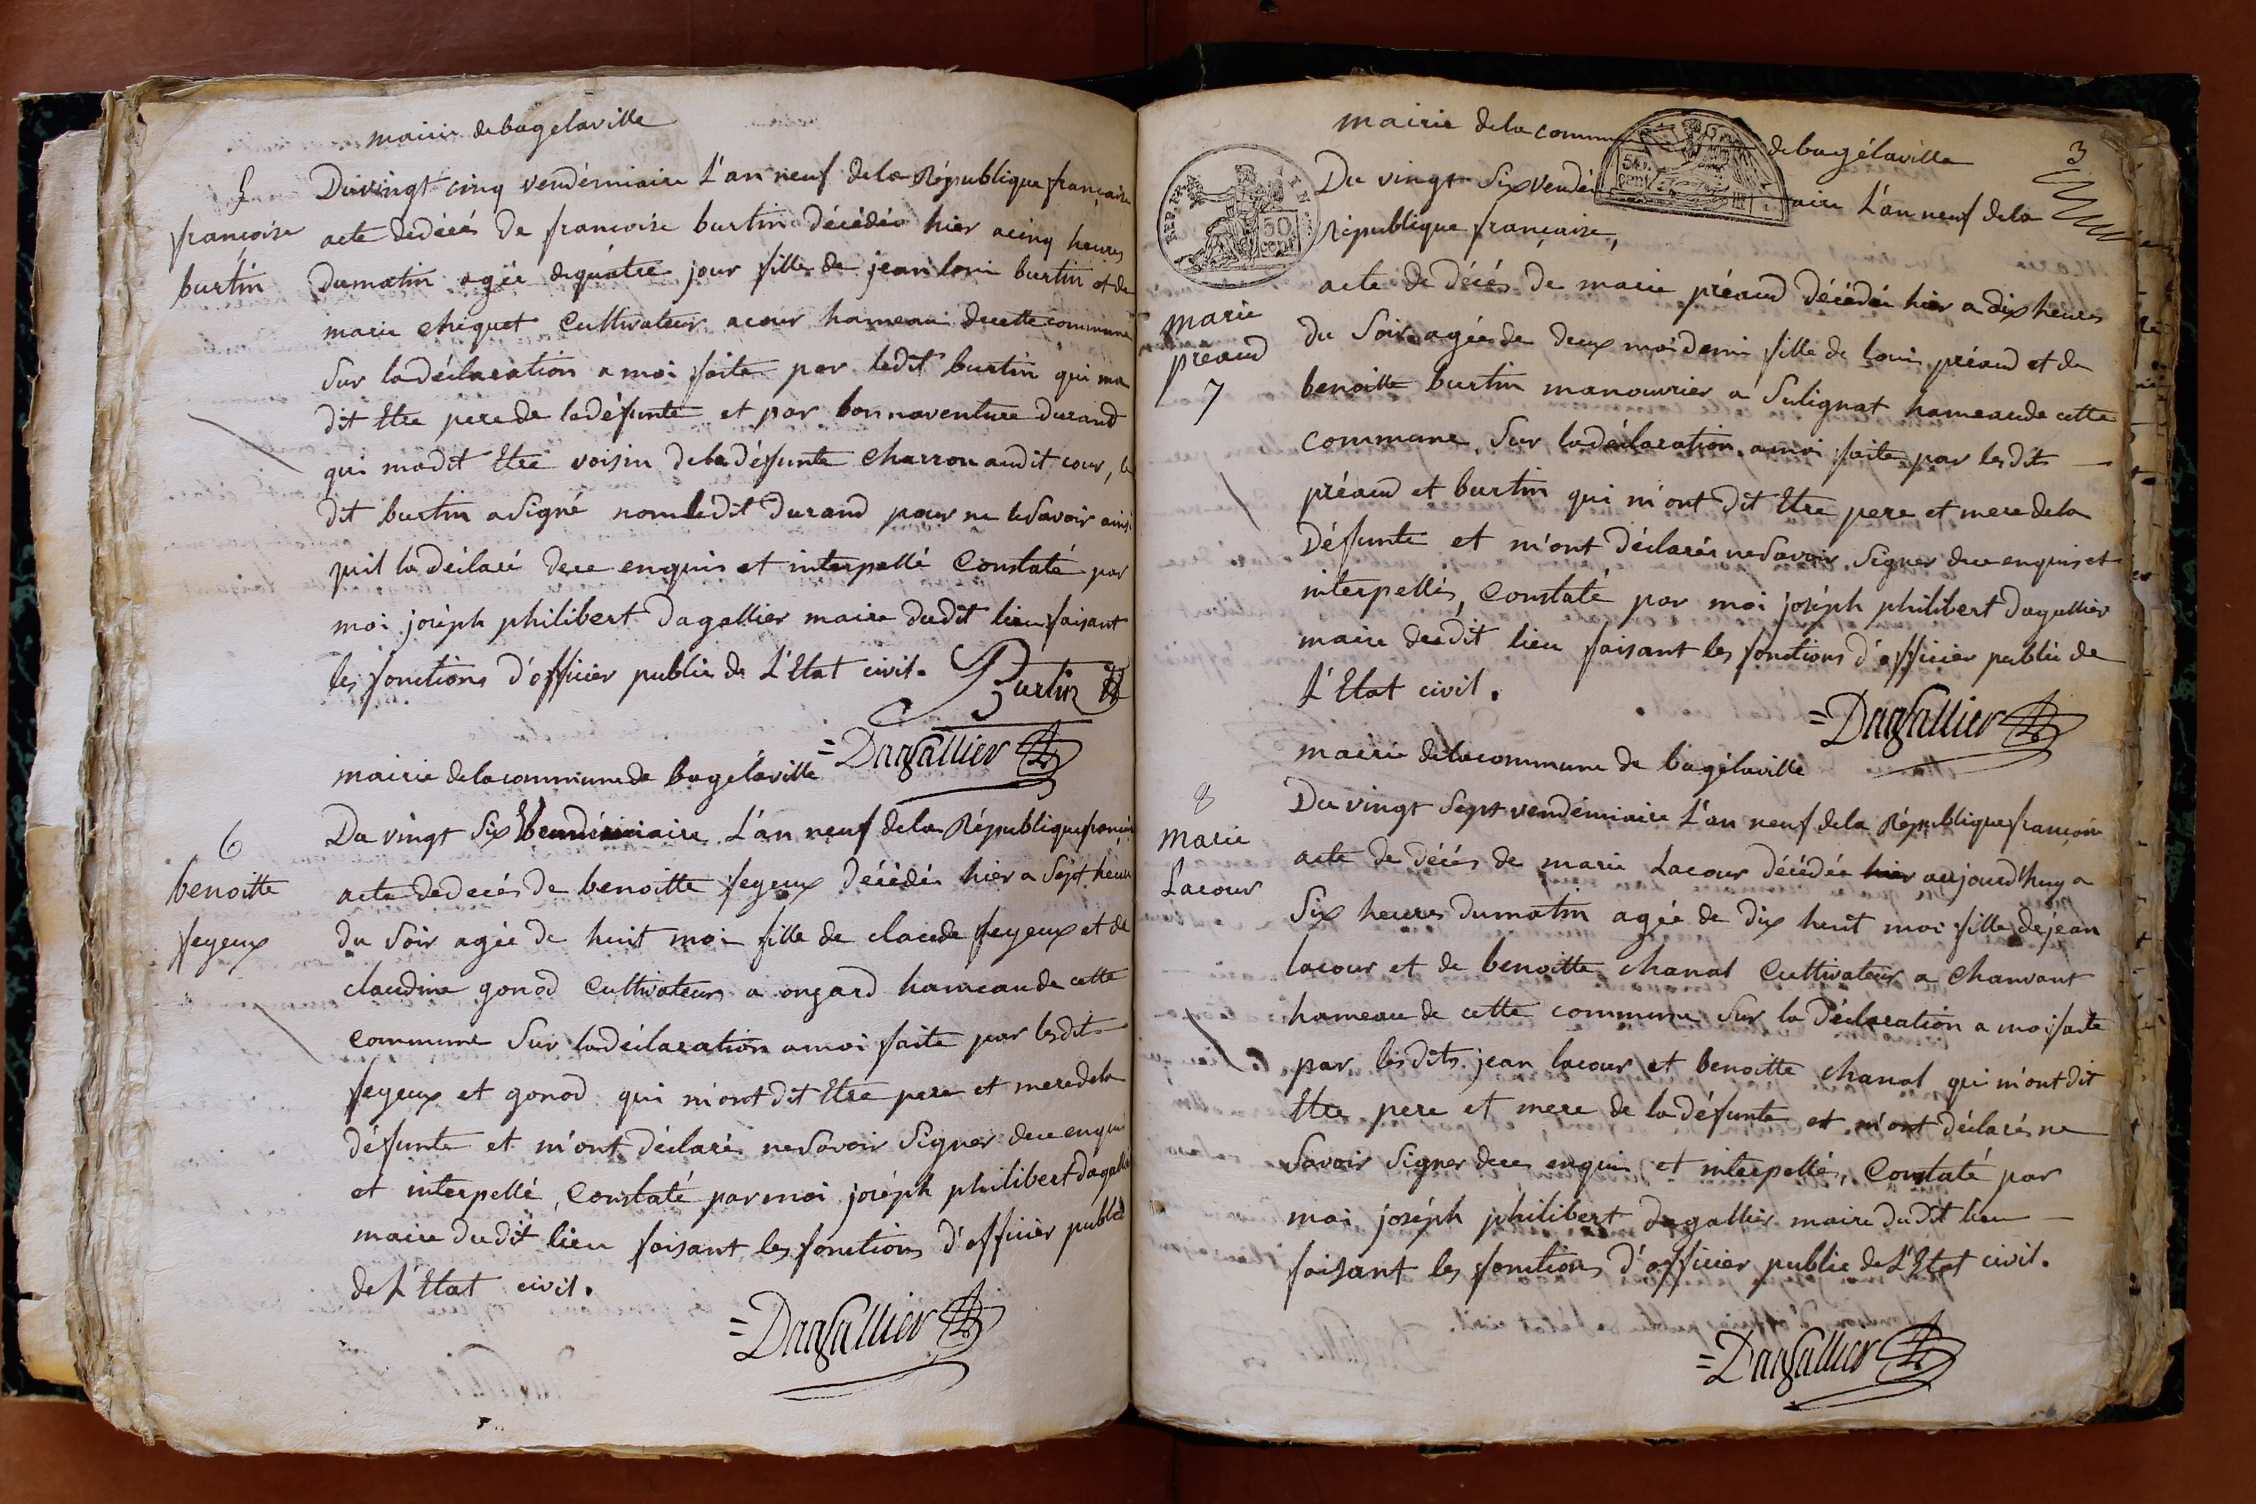 mairie de bagelaville
5
françoise
burtin
Du vingt cinq vendémiaire L'an neuf dela République française
acte dedécés De francoise burtin Décédée hier acinq heures
Dumatin agée dequatre jour fille de jean loui burtin et de
marie chequet Cultivateur acour hameau decette commune
Sur ladéclaration a moi faite par ledit burtin qui ma
dit Etre pere de la défunte et par bonnaventure durand
qui madit Etre voisin dela défunte charron audit cour, le
dit burtin a signé nomledit Durand pour ne le Savoir ainsi
quil la déclaré dece enquis et interpellé Constaté par
moi joséph philibert Dagallier maire dudit lieu faisant
les fonctions d'officier public de L'Etat civil.
Burtin
=Dagallier
mairie delacommune de bagélaville
6
benoitte
feyeux
Du vingt Six Vendémiaire L'an neuf dela République françoise
acte dedecés de benoitte feyeux Décédée hier a Sept heures
du Soir agée de huit moi fille de claude feyeux et de
claudine gonod Cultivateurs a ongard hameau de cette
commune Sur ladéclaration amoi faite par lesdits
feyeux et gonod qui m'ont dit Etre pere et mere dela
défunte et m'ont déclaré ne Savoir Signer dece enqui
et interpellé, Constaté par moi joséph philibert dagallier
maire dudit lieu faisant les fonctions d'officier public
de L'Etat civil.
=Dagallier
3
mairie dela commune de bagélaville
REP. FRA.
50
cent
50
cent
Du vingt Six vendémiaire L'an neuf dela
République française,
marie
préaud
7
acte de décés De marie préaud décédée hier a dix heures
du Soir agée de deux moi demi fille de loui préaud et de
benoitte burtin manouvrier a Sulignat hameau de cette
commune, Sur ladéclaration amoi faite par lesdits
préaud et burtin qui m'ont dit Etre pere et mere dela
Défunte et m'ont déclarés ne Savoir Signer dece enquis et
interpellés, Constaté par moi joséph philibert dagallier
maire dudit lieu faisant les fonctions d'officier public de
L'Etat civil.
=Dagallier
mairie delacommune de bagélaville
8
Marie
Lacour
Du vingt Sept vendémiaire L'an neuf dela République françoise
acte de décés de marie Lacour décédée hier aujourd'huy a
Six heures dumatin agée de dix huit moi fille de jean
lacour et de benoitte chanal Cultivateur a chanvant
hameau de cette commune Sur la Déclaration a moi faite
par lesdits jean lacour et benoitte chanal qui m'ont dit
Etre pere et mere de la défunte et m'ont déclarés ne
Savoir Signer dece enquis et interpellé, Constaté par
moi joséph philibert dagallier maire dudit lieu
faisant les fonctions d'officier public de L'Etat civil.
=Dagallier